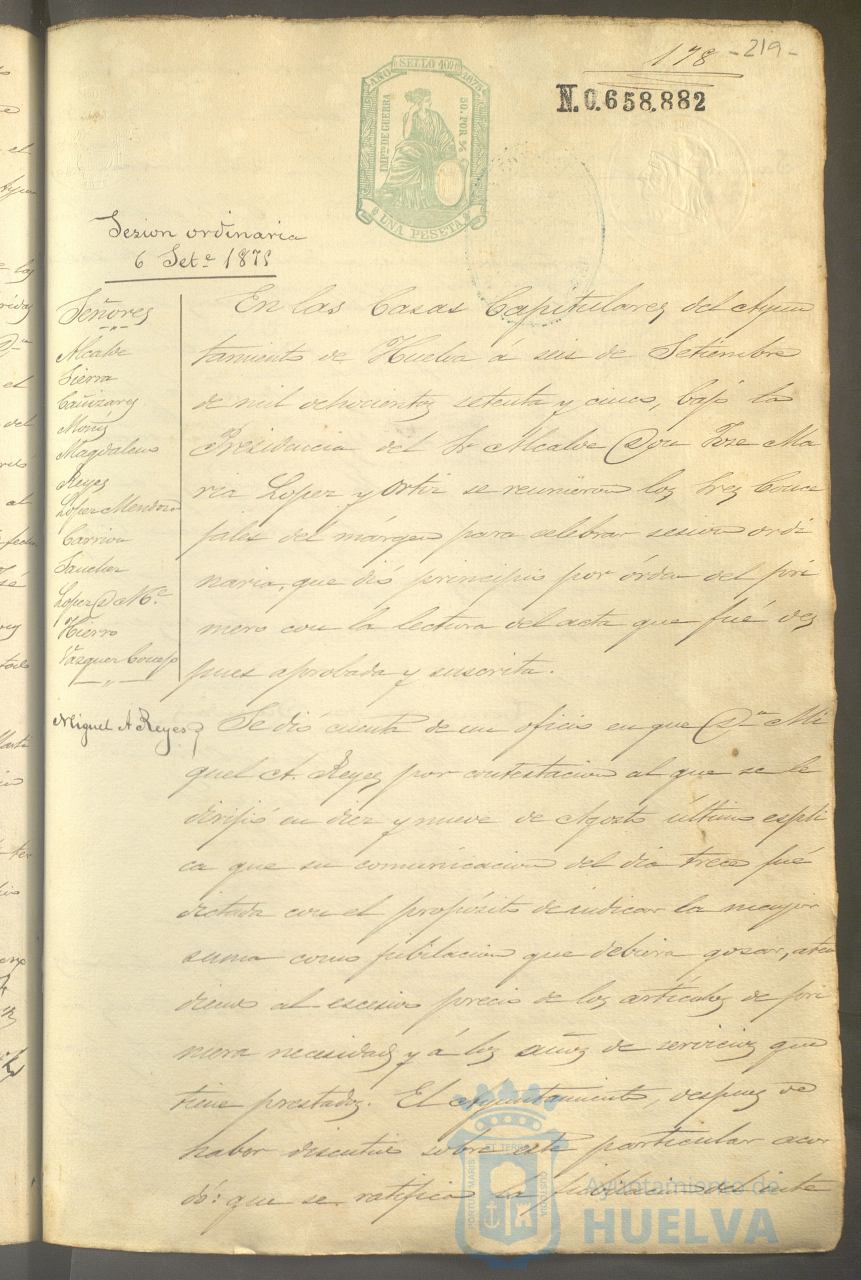 178 -219-
N.0.658.882
AÑO SELLO 10º 1875
IMPTO DE GUERRA
50 POR %
UNA PESETA
Sezion ordinaria
6 Set.e 1875
Señores
Alcalde
Sierra
Cañizares
Moñiz
Magdaleno
Reyes
Lopez Mendoza
Carrion
Sanchez
Lopez D. M.e
Hierro
Vazquez Conejo
En las Casas Capitulares del Ayun
tamiento de Huelva á seis de Setiembre
de mil ochocientos setenta y cinco, bajo la
Presidencia del Sr Alcalde Don Jose Ma
ria Lopez y Ortiz se reunieron los Sres Conce
jales del márgen para celebrar sesion ordi
naria, que dió principio por órden del pri
mero con la lectura del acta que fué des
pues aprobada y suscrita.
Miguel A. Reyes
Se dió cuenta de un oficio en que Dn Mi
guel A. Reyes por contestacion al que se le
dirijió en diez y nueve de Agosto último espli
ca que su comunicacion del dia trece fué
dictada con el propósito de indicar la mayor
suma como jubilacion que debiera gosar, aten
diendo al escesivo precio de los artículos de pri
mera necesidad y á los años de servicios que
tiene prestados. El Ayuntamiento, despues de
haber discutido sobre este particular acor
dó: que se ratifica la jubilacion de siete
PORTUS MARIS ET TERRAE CUSTODIA
Ayuntamiento de
HUELVA